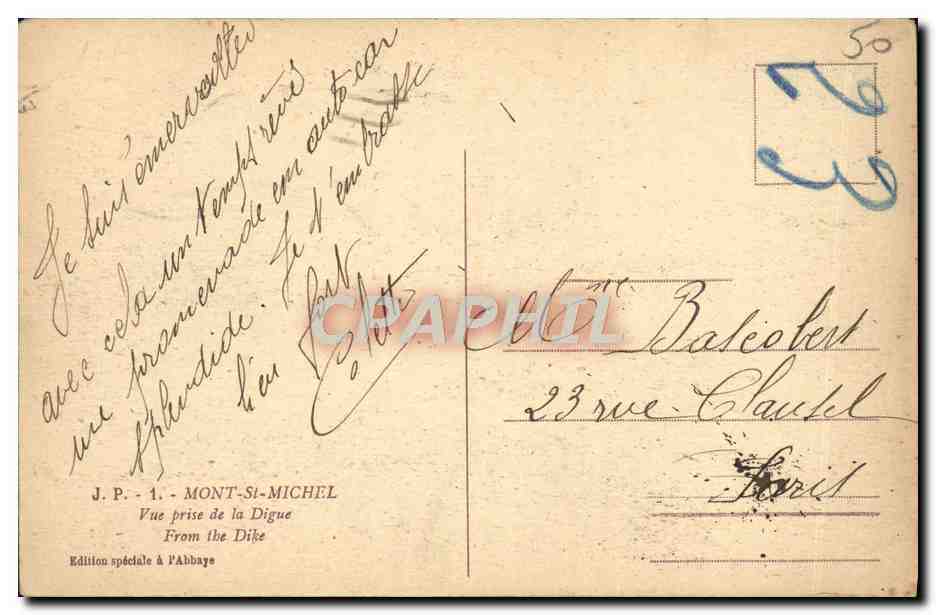 Je suis émerveillée
avec cela un temps rêvé
une promenade en auto car
splendide. Je t'embrasse
bien fort
Colette
J. P. - 1. - MONT-St-MICHEL
Vue prise de la Digue
From the Dike
Edition spéciale à l'Abbaye
50
23
CPARAMA
Mme Bascobert
23 rue Clausel
Paris